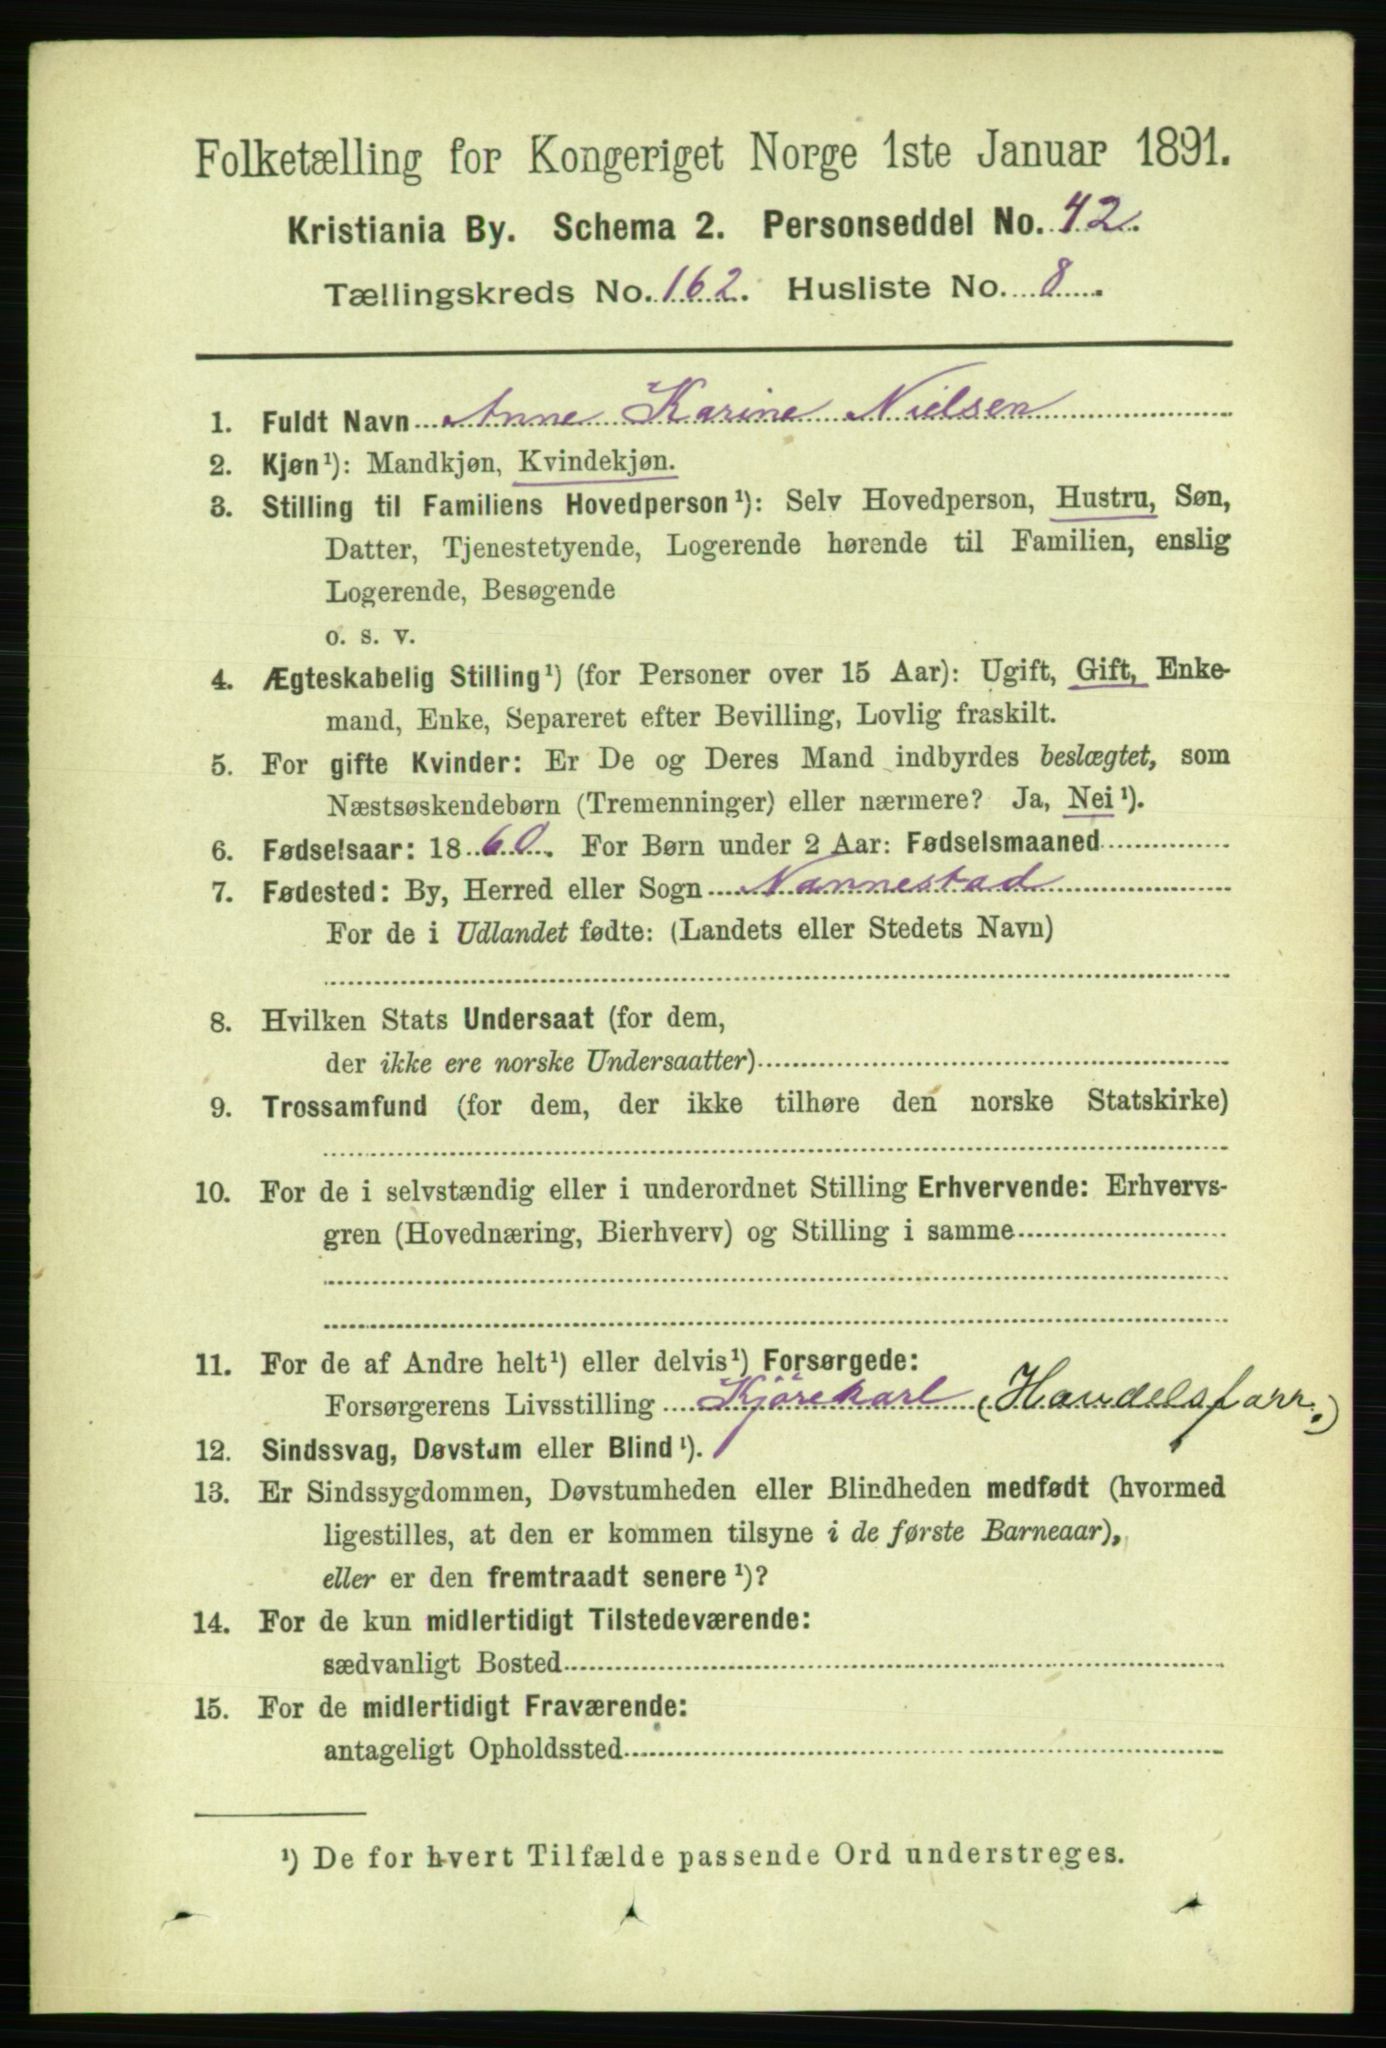 Folketælling for Kongeriget Norge 1ste Januar 1891.
Kristiania By. Schema 2. Personseddel No. 42.
Tællingskreds No. 162. Husliste No. 8.
1. Fuldt Navn Anne Karine Nielsen
2. Kjøn¹): Mandkjøn, Kvindekjøn.
3. Stilling til Familiens Hovedperson¹): Selv Hovedperson, Hustru, Søn,
Datter, Tjenestetyende, Logerende hørende til Familien, enslig
Logerende, Besøgende
o. s. v.
4. Ægteskabelig Stilling¹) (for Personer over 15 Aar): Ugift, Gift, Enke-
mand, Enke, Separeret efter Bevilling, Lovlig fraskilt.
5. For gifte Kvinder: Er De og Deres Mand indbyrdes beslægtet, som
Næstsøskendebørn (Tremenninger) eller nærmere? Ja, Nei¹).
6. Fødselsaar: 1860. For Børn under 2 Aar: Fødselsmaaned
7. Fødested: By, Herred eller Sogn Nannestad
For de i Udlandet fødte: (Landets eller Stedets Navn)
8. Hvilken Stats Undersaat (for dem,
der ikke ere norske Undersaatter)
9. Trossamfund (for dem, der ikke tilhøre den norske Statskirke)
10. For de i selvstændig eller i underordnet Stilling Erhvervende: Erhvervs-
gren (Hovednæring, Bierhverv) og Stilling i samme
11. For de af Andre helt¹) eller delvis¹) Forsørgede:
Forsørgerens Livsstilling Kjørekarl (Handelsforr.)
12. Sindssvag, Døvstum eller Blind¹).
13. Er Sindssygdommen, Døvstumheden eller Blindheden medfødt (hvormed
ligestilles, at den er kommen tilsyne i de første Barneaar),
eller er den fremtraadt senere¹)?
14. For de kun midlertidigt Tilstedeværende:
sædvanligt Bosted
15. For de midlertidigt Fraværende:
antageligt Opholdssted
¹) De for hvert Tilfælde passende Ord understreges.